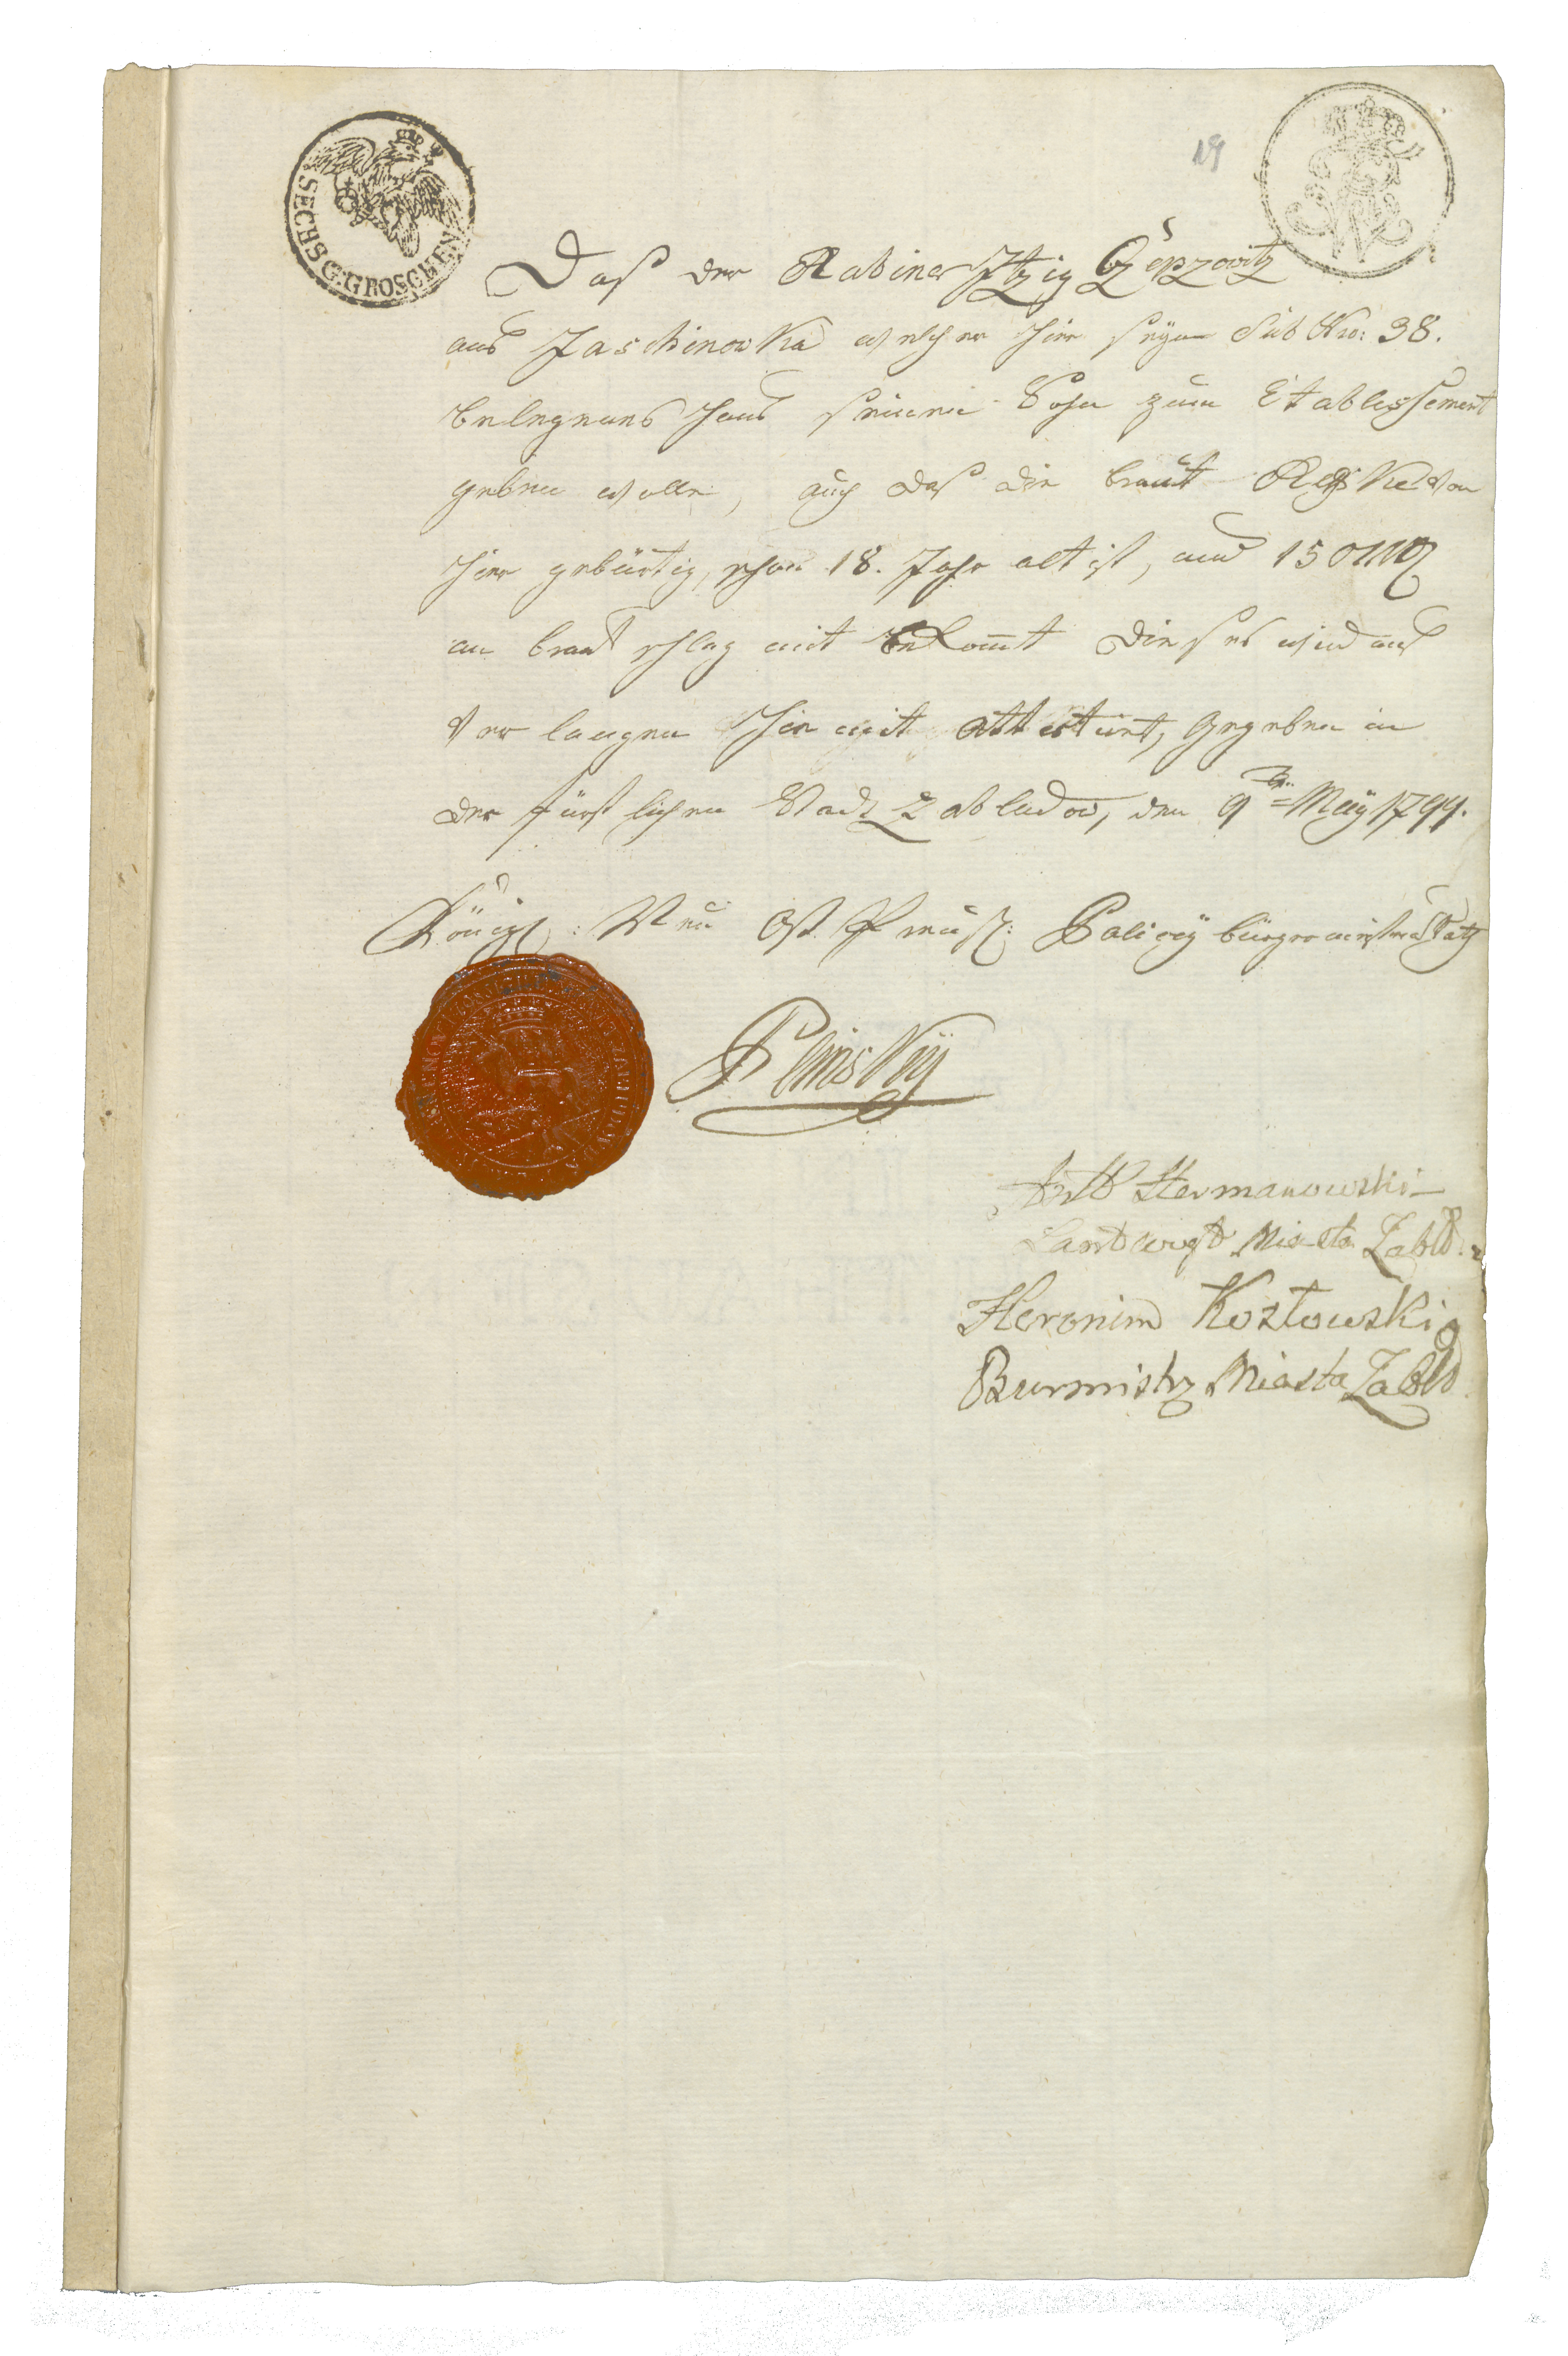 SECHS G. GROSCHEN
19
Daß der Rabiner Itzig
aus Jaschinowka welcher hier seyn Sub Nro: 38.
belegenes Haus seinem Sohn zum Etablissement
geben wolle, auch daß die braut von
hier gebürtig, schon 18. Jahr alt ist, und 150
an braut schatz mit bekomt dieses wird auf
Verlangen hier mit attestiret, Gegeben in
der fürstlichen Stadt Zabludow, den 9ten May 1799.
Königl: Neu Ost Preuß: Policey bürgermeister
Hermanowski
Lantwojt Miasta Zabłd.
Heronim Kozłowski
Burmistrz Miasta Zabłd